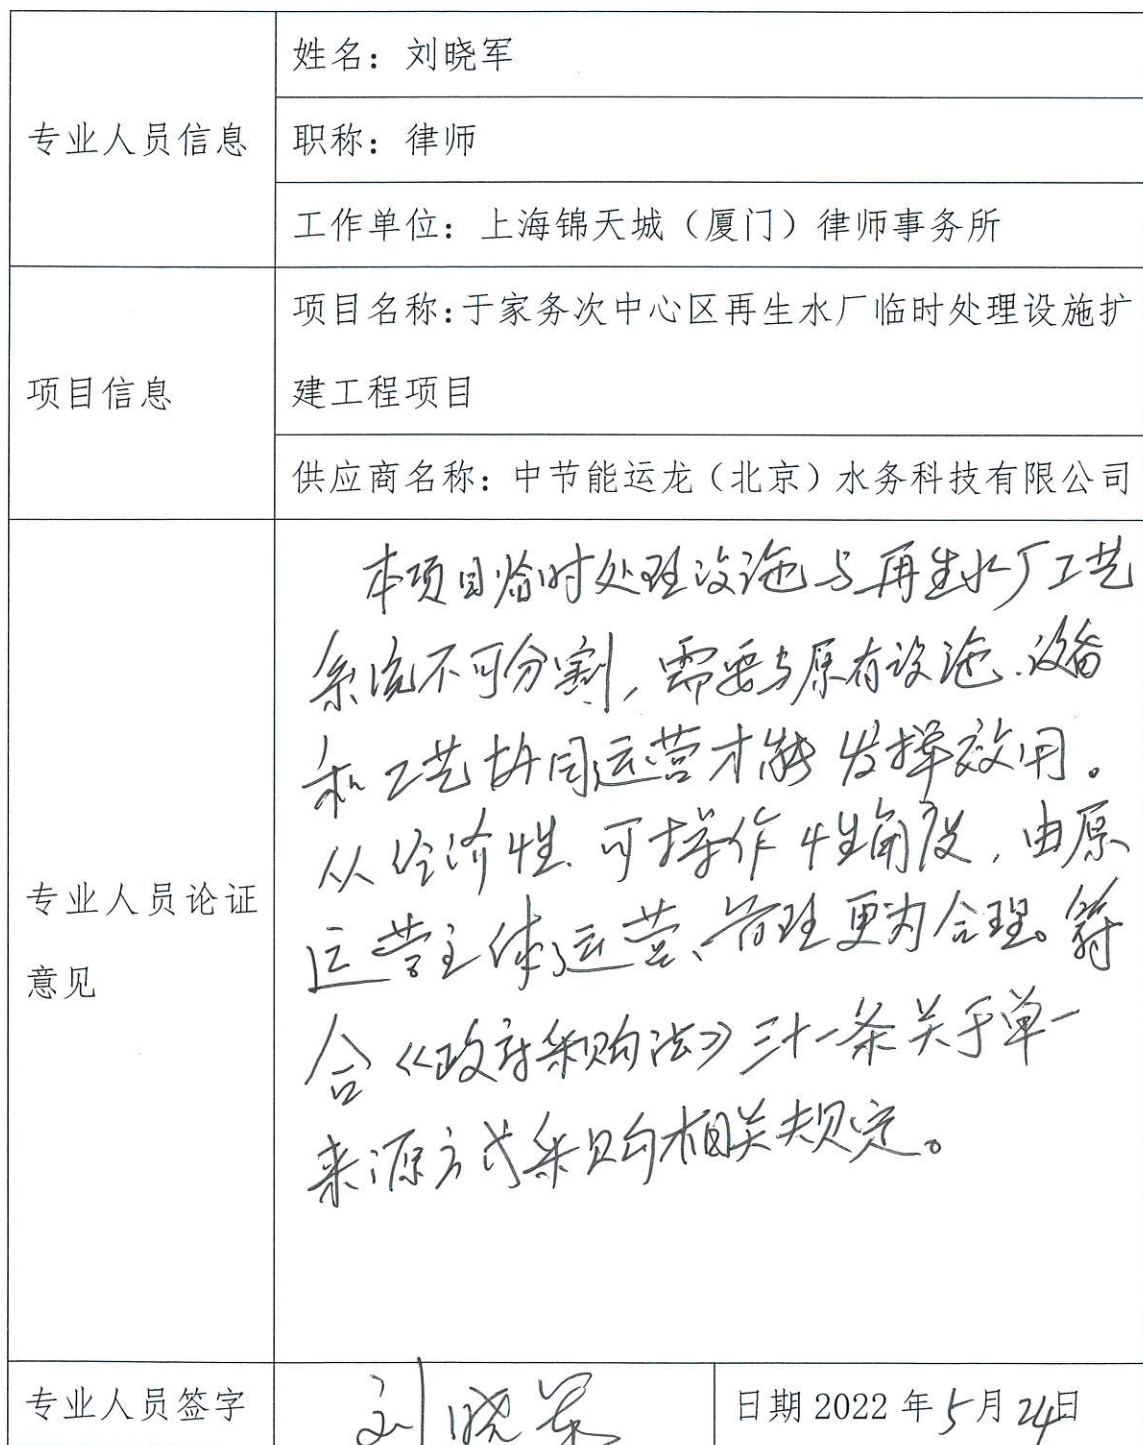 姓名：刘晓军
专业人员信息
职称：律师
工作单位：上海锦天城（厦门）律师事务所
项目名称:于家务次中心区再生水厂临时处理设施扩
项目信息
建工程项目
供应商名称：中节能运龙（北京）水务科技有限公司
本项目临时处理设施与再生水厂工艺
系统不可分割，需要与原有设施、设备
和工艺协同运营才能发挥效用。
从经济性、可操作性角度，由原
专业人员论证
运营主体运营、管理更为合理。符
意见
合《政府采购法》三十一条关于单一
来源方式采购相关规定。
专业人员签字 刘晓军 日期 2022 年 5月 24日